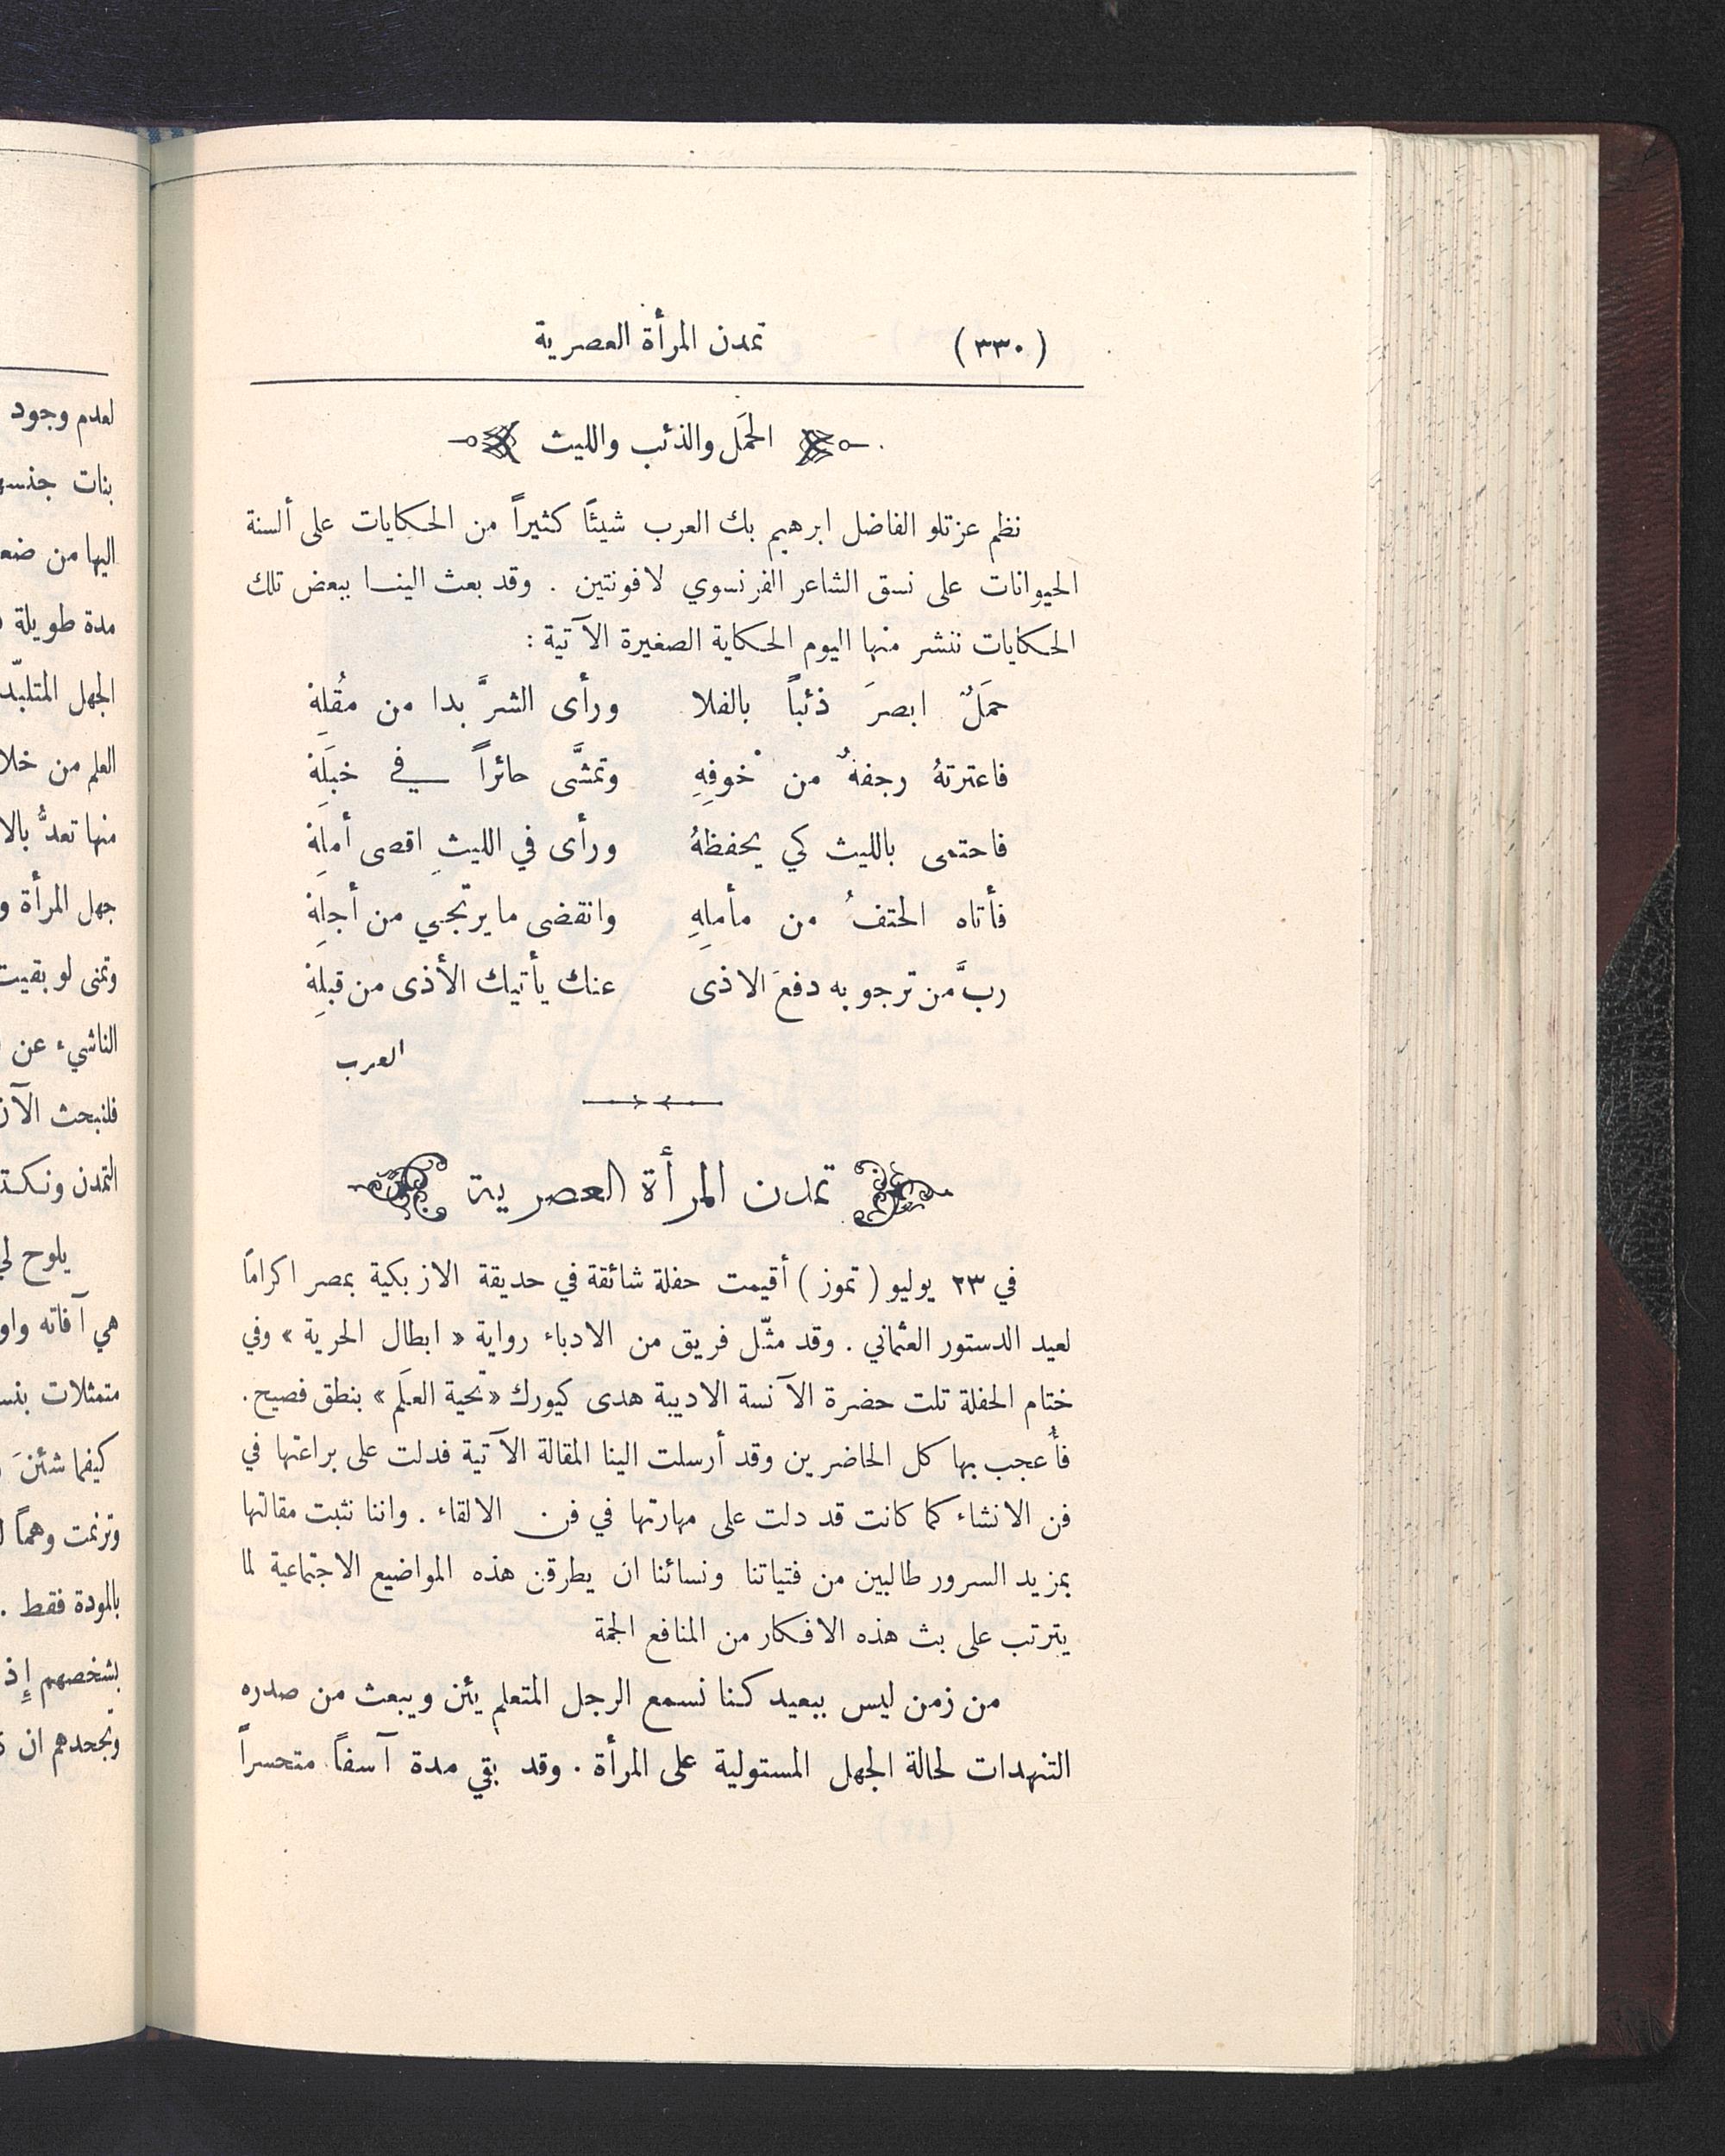 (٣٣٠) تمدن المرأة العصرية
الحَمَل والذئب والليث
نظم عزتلو الفاضل ابرهيم بك العرب شيئاً كثيراً من الحكايات على ألسنة
الحيوانات على نسق الشاعر الفرنسوي لافونتين . وقد بعث الينا ببعض تلك
الحكايات ننشر منها اليوم الحكاية الصغيرة الآتية :
حمَلٌ ابصرَ ذئباً بالفلا ورأى الشرَّ بدا من مُقلِهْ
فاعترتهُ رجفةٌ من خوفِهِ وتمشَّى حائراً في خبَلِهْ
فاحتمى بالليث كي يحفظهُ ورأى في الليثِ اقصى أملِهْ
فأتاه الحتفُ من مأملِهِ وانقضى ما يرتجي من أجلِهْ
ربَّ من ترجو به دفعَ الاذى عنك يأتيك الأذى من قبلِهْ
العرب
تمدن المرأة العصرية
في ٢٣ يوليو ( تموز ) أقيمت حفلة شائقة في حديقة الازبكية بمصر اكراماً
لعيد الدستور العثماني . وقد مثّل فريق من الادباء رواية « ابطال الحرية » وفي
ختام الحفلة تلت حضرة الآنسة الاديبة هدى كيورك «تحية العلَم» بنطق فصيح .
فأُعجب بها كل الحاضرين وقد أرسلت الينا المقالة الآتية فدلت على براعتها في
فن الانشاء كما كانت قد دلت على مهارتها في فن الالقاء . واننا نثبت مقالتها
بمزيد السرور طالبين من فتياتنا ونسائنا ان يطرقن هذه المواضيع الاجتماعية لما
يترتب على بث هذه الافكار من المنافع الجمة
من زمن ليس ببعيد كنا نسمع الرجل المتعلم يئن ويبعث من صدره
التنهدات لحالة الجهل المستولية على المرأة . وقد بقي مدة آسفاً متحسراً
لعدم وجود
بنات
اليها من
مدة طويلة
الجهل
العلم من
منها تعدُّ
جهل المرأة
وتمنى لو بقيت
الناشيء عن
فلنبحث الآن
التمدن
يلوح لي
هي آفاته
متمثلات
كيفما شئنَ
وترنمت وهماً
بالمودة فقط .
بشخصهم إِذ
وتجحدهم ان